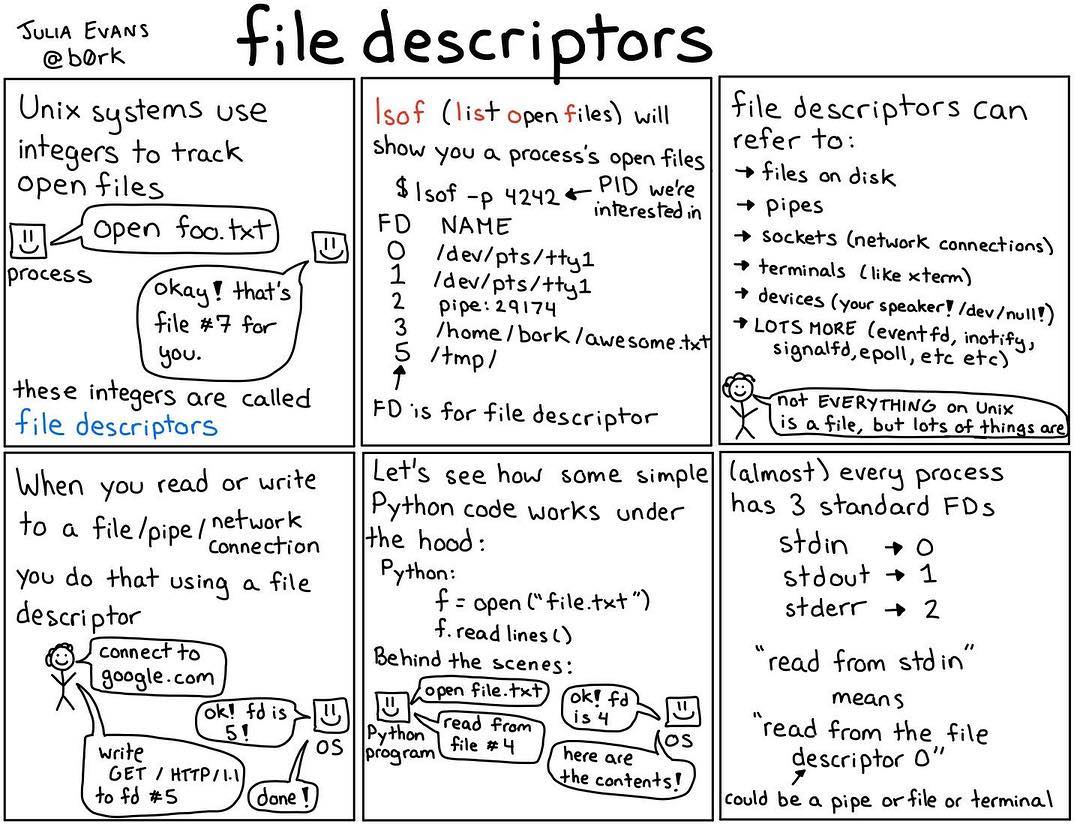 JULIA EVANS
@b0rk
file descriptors
Unix systems use
integers to track
open files
open foo.txt
process
okay! that's
file #7 for
you.
these integers are called
file descriptors
lsof (list open files) will
show you a process's open files
$ lsof -p 4242 ← PID we're
interested in
FD NAME
0 /dev/pts/tty1
1 /dev/pts/tty1
2 pipe:29174
3 /home/bork/awesome.txt
5 /tmp/
FD is for file descriptor
file descriptors can
refer to:
→ files on disk
→ pipes
→ sockets (network connections)
→ terminals (like xterm)
→ devices (your speaker! /dev/null!)
→ LOTS MORE (eventfd, inotify,
signalfd, epoll, etc etc)
not EVERYTHING on Unix
is a file, but lots of things are
When you read or write
to a file/pipe/network
connection
you do that using a file
descriptor
connect to
google.com
ok! fd is
5!
OS
write
GET / HTTP/1.1
to fd #5
done!
Let's see how some simple
Python code works under
the hood:
Python:
f = open("file.txt")
f.readlines()
Behind the scenes:
open file.txt
ok! fd
is 4
Python
program
read from
file #4
OS
here are
the contents!
(almost) every process
has 3 standard FDs
stdin → 0
stdout → 1
stderr → 2
"read from stdin"
means
"read from the file
descriptor 0"
could be a pipe or file or terminal